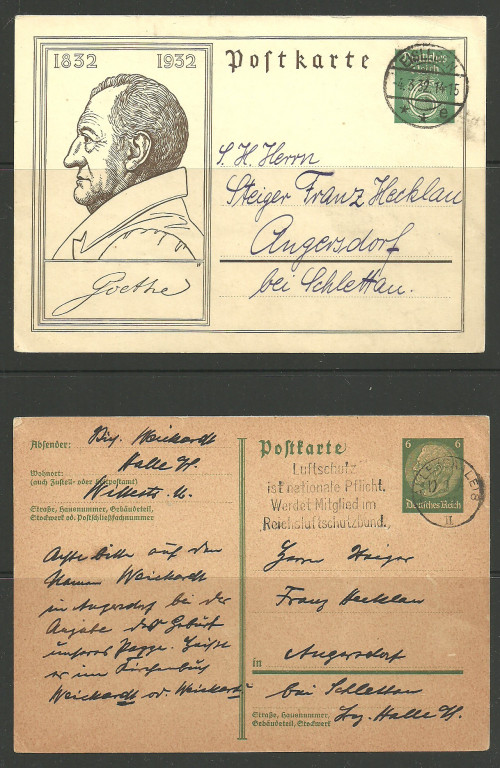 1832 1932
Postkarte
Deutsches
Reich
6
4.3.32.14-15
* * e
S. H. Herrn
Steiger Franz Hecklau
Angersdorf
bei Schlettau.
Goethe
Absender:
Weickardt
Halle
Wohnort:
(auch Zustell- oder Leitpostamt)
Straße, Hausnummer, Gebäudeteil,
Stockwerk od. Postschließfachnummer
auf den
Namen Weickardt
in Angersdorf bei der
Angabe der Geburt
unseres
er im Kirchenbuch
Weickardt od.
Postkarte
6 6
Deutsches Reich
Luftschutz
ist nationale Pflicht.
Werdet Mitglied im
Reichsluftschutzbund.
II
Herrn
Franz Hecklau
in Angersdorf
bei Schlettau
Halle
Straße, Hausnummer,
Gebäudeteil, Stockwerk